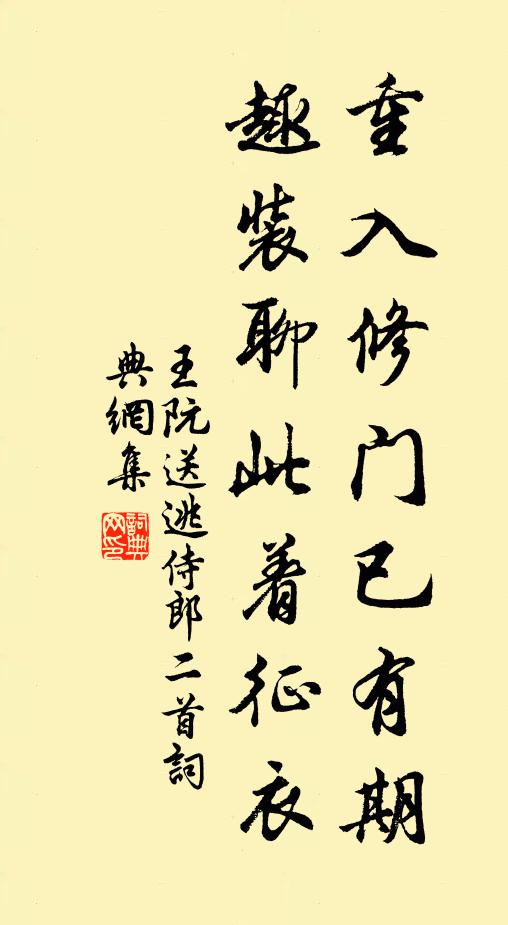 重入修门已有期
趣装聊此着征衣
王阮送逃侍郎二首詞
典網集
詞典网印